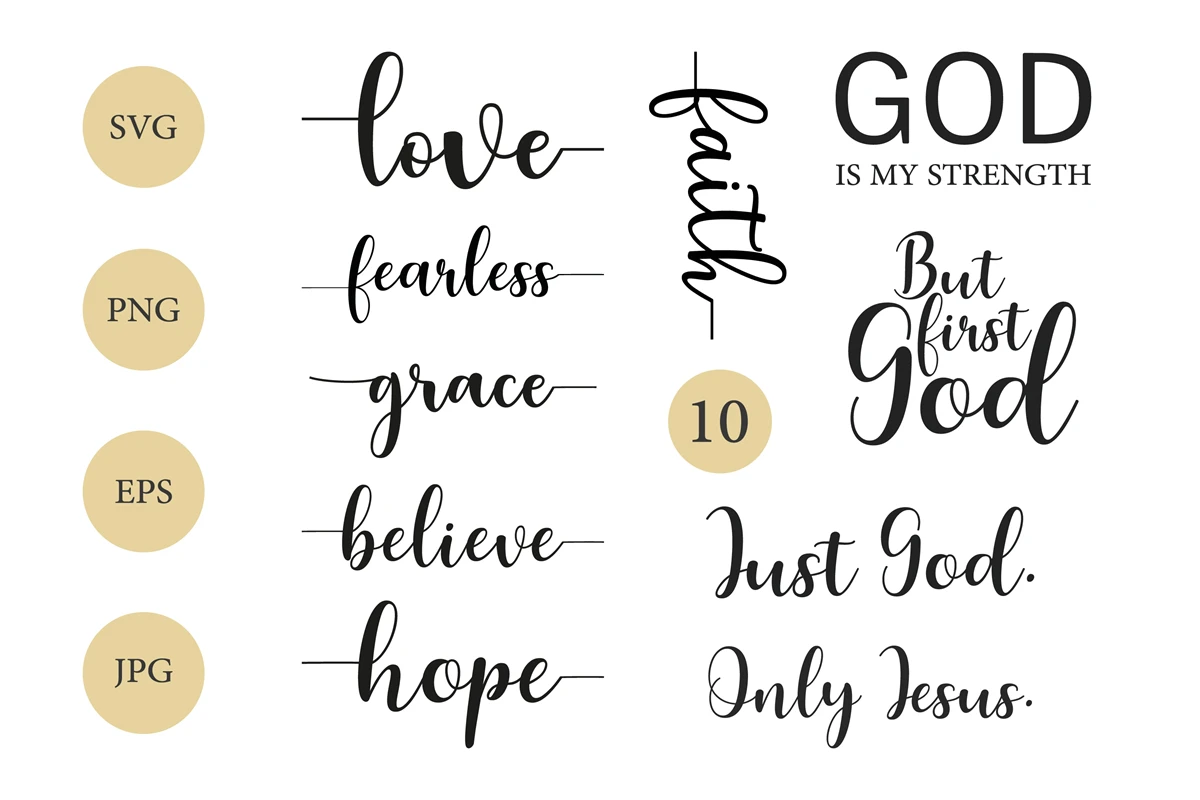 SVG
PNG
EPS
JPG
love
fearless
grace
believe
hope
faith
10
GOD
IS MY STRENGTH
But
first
God
Just God.
Only Jesus.